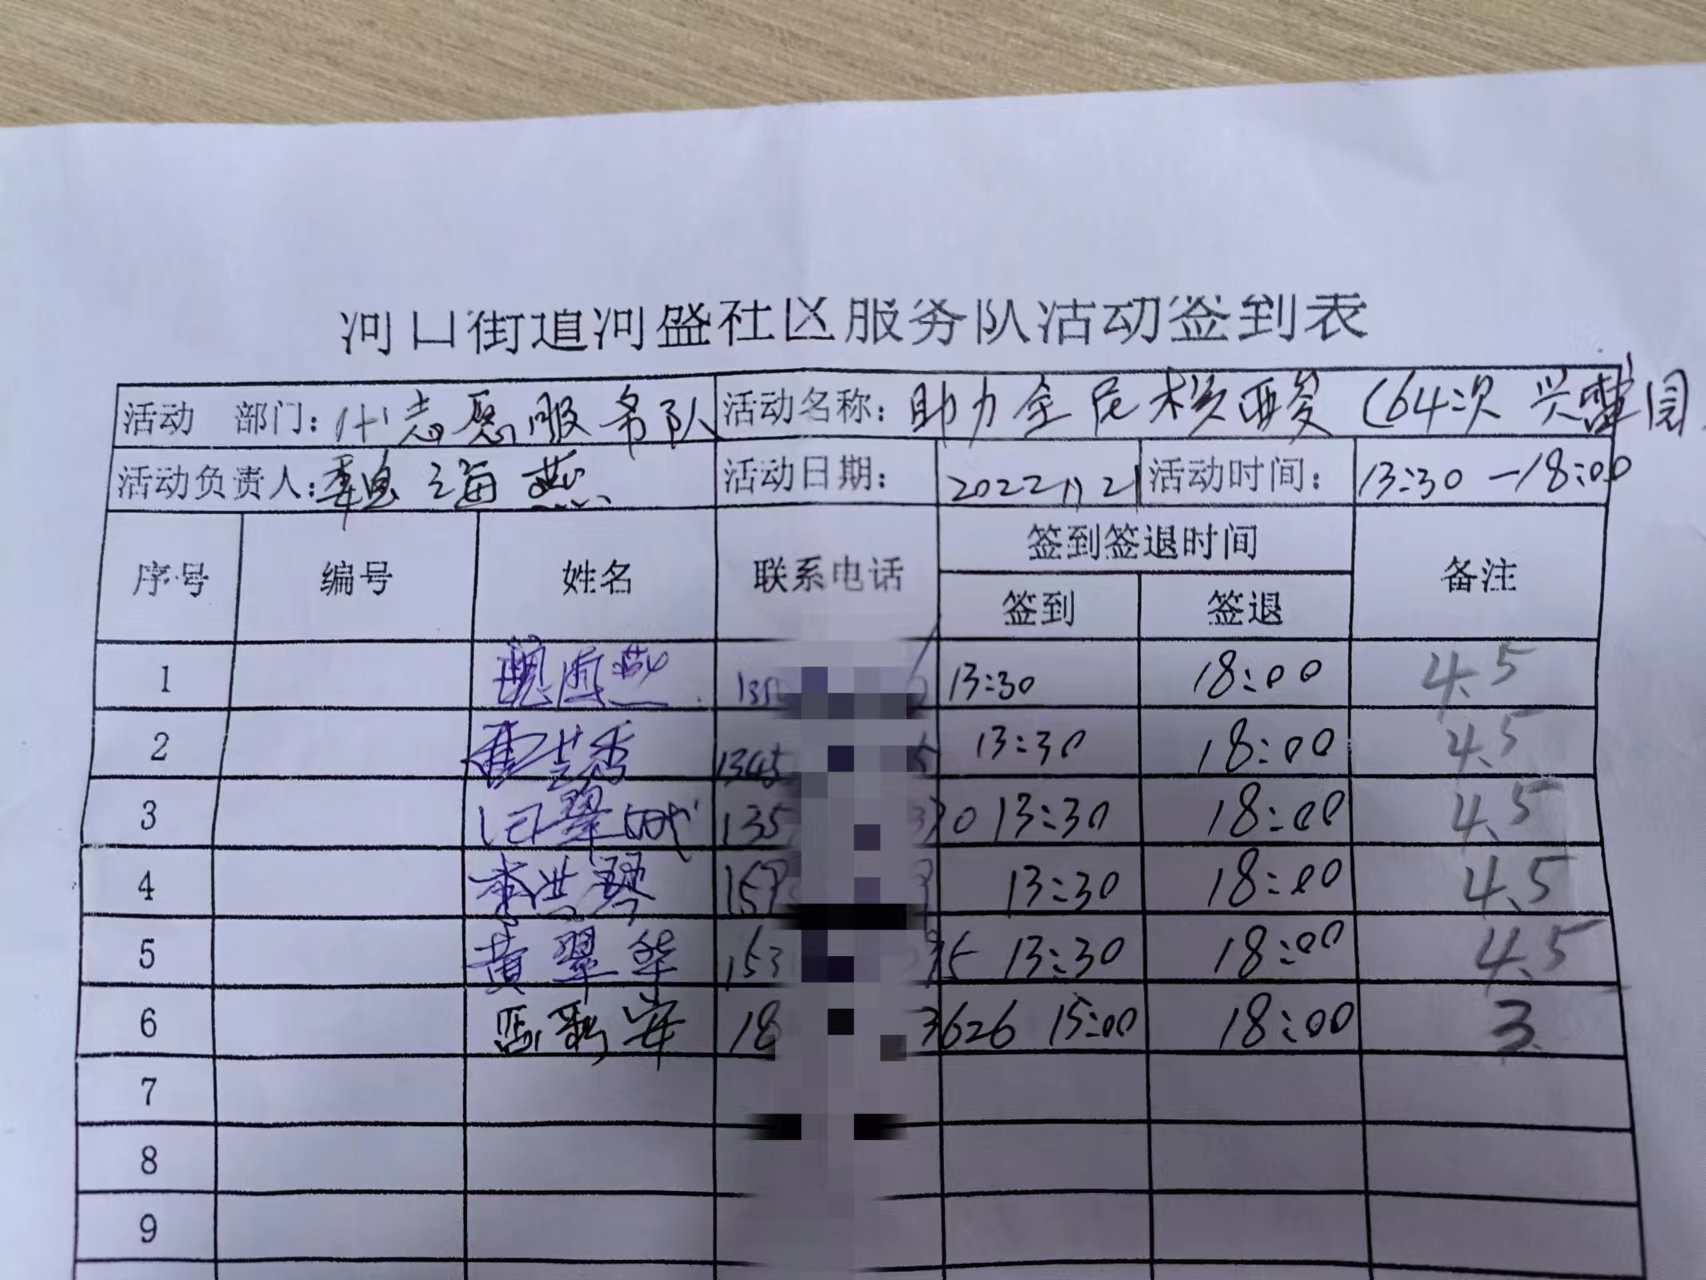 河口街道河盛社区服务队活动签到表
活动 部门: 志愿服务队 活动名称: 助力全民核酸 (64次 兴盛园
活动负责人: 海燕 活动日期: 2022 11 21 活动时间: 13:30-18:00
序号 编号 姓名 联系电话 签到签退时间 备注
签到 签退
1 13:30 18:00 4.5
2 秀 1345 13:30 18:00 4.5
3 翠 135 13:30 18:00 4.5
4 李兰琴 13:30 18:00 4.5
5 黄翠华 153 13:30 18:00 4.5
6 18 3626 15:00 18:00 3
7
8
9